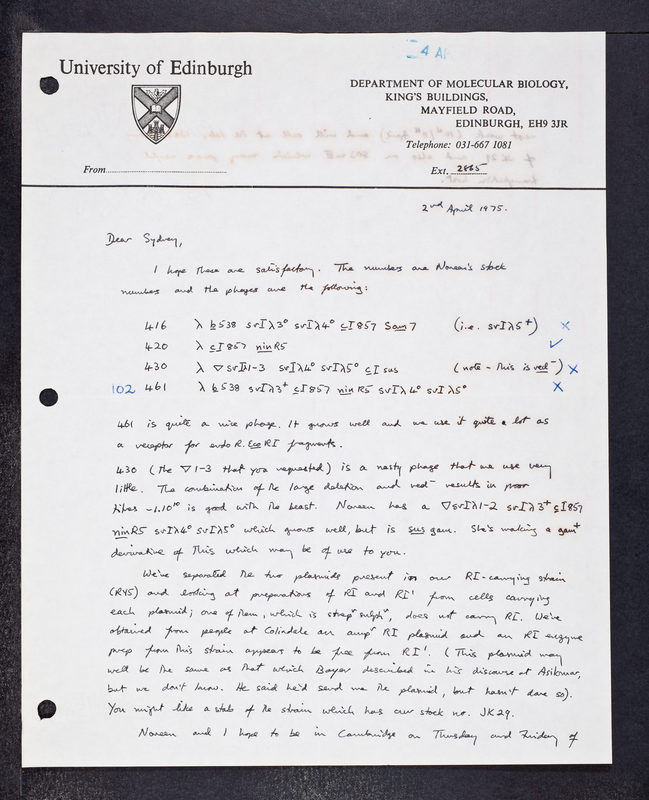 4 AP
University of Edinburgh
DEPARTMENT OF MOLECULAR BIOLOGY,
KING'S BUILDINGS,
MAYFIELD ROAD,
EDINBURGH, EH9 3JR
Telephone: 031-667 1081
From
Ext. 2865
2nd April 1975.
Dear Sydney,
I hope these are satisfactory. The numbers are Noreen's stock
numbers and the phages are the following:
416 λ b538 srIλ3° srIλ4° cI857 Sam7 (i.e. srIλ5+) x
420 λ cI857 ninR5 ✓
430 λ ∇srIλ1-3 srIλ4° srIλ5° cI sus (note - this is red-) x
102 461 λ b538 srIλ3+ cI857 ninR5 srIλ4° srIλ5° x
461 is quite a nice phage. It grows well and we use it quite a lot as
a receptor for endo R.EcoRI fragments.
430 (the ∇1-3 that you requested) is a nasty phage that we use very
little. The combination of the large deletion and red- results in poor
titres ~1.10¹⁰ is good with the beast. Noreen has a ∇srIλ1-2 srIλ3+ cI857
ninR5 srIλ4° srIλ5° which grows well, but is sus gam. She's making a gam+
derivative of this which may be of use to you.
We've separated the two plasmids present in our RI-carrying strain
(RY5) and looking at preparations of RI and RI' from cells carrying
each plasmid; one of them, which is strepʳ sulphʳ, does not carry RI. We've
obtained from people at Colindale an ampʳ RI plasmid and an RI enzyme
prep from this strain appears to be free from RI'. (This plasmid may
well be the same as that which Boyer described in his discourse at Asilomar,
but we don't know. He said he'd send me the plasmid, but hasn't done so).
You might like a stab of the strain which has our stock no. JK29.
Noreen and I hope to be in Cambridge on Thursday and Friday of